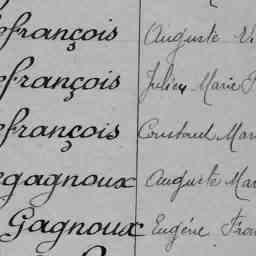 efrançois Auguste Vi
efrançois Julien Marie
efrançois Constant Mar
egagnoux Auguste Mar
Gagnoux Eugène Fran